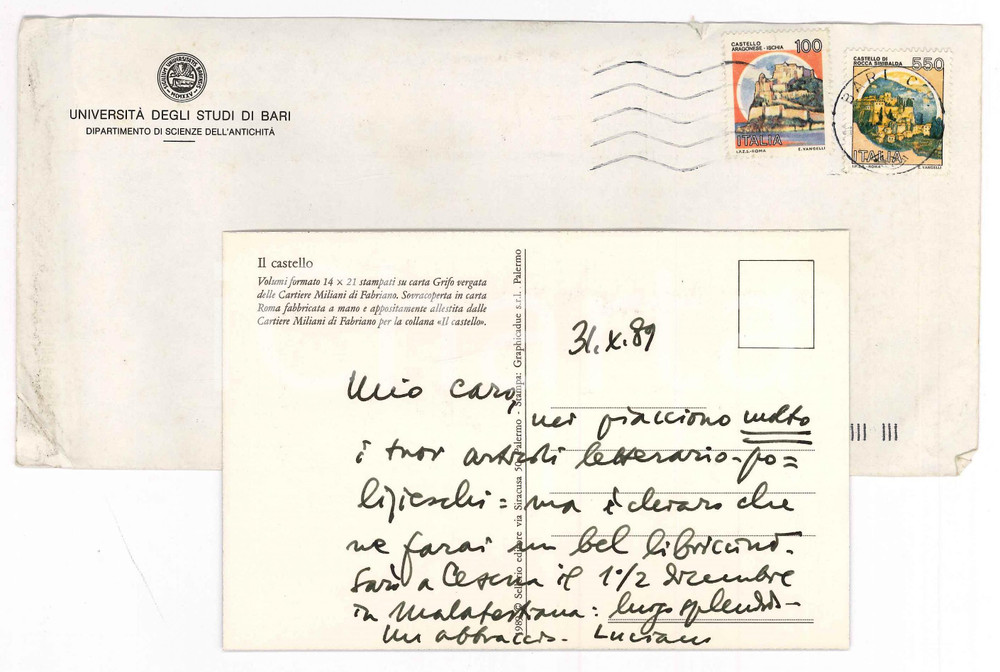 UNIVERSITÀ DEGLI STUDI DI BARI
DIPARTIMENTO DI SCIENZE DELL'ANTICHITÀ
CASTELLO
ARAGONESE - ISCHIA
100
ITALIA
I.P.Z.S. - ROMA E. VANGELLI
CASTELLO DI
ROCCA SINIBALDA
550
BARI
ITALIA
I.P.Z.S. - ROMA E. VANGELLI
Il castello
Volumi formato 14 × 21 stampati su carta Grifo vergata
delle Cartiere Miliani di Fabriano. Sovracoperta in carta
Roma fabbricata a mano e appositamente allestita dalle
Cartiere Miliani di Fabriano per la collana «Il castello».
1989 © Sellerio editore via Siracusa 50 Palermo - Stampa: Graphicadue s.r.l. Palermo
31.X.89
Mio caro,
mi piacciono molto
i tuoi articoli letterario-po=
lizieschi: ma è chiaro che
ne farai un bel libriccino.
Sarò a Cesena il 1°/2 dicembre
in Malatestiana: luogo splendido-
Un abbraccio. Luciano